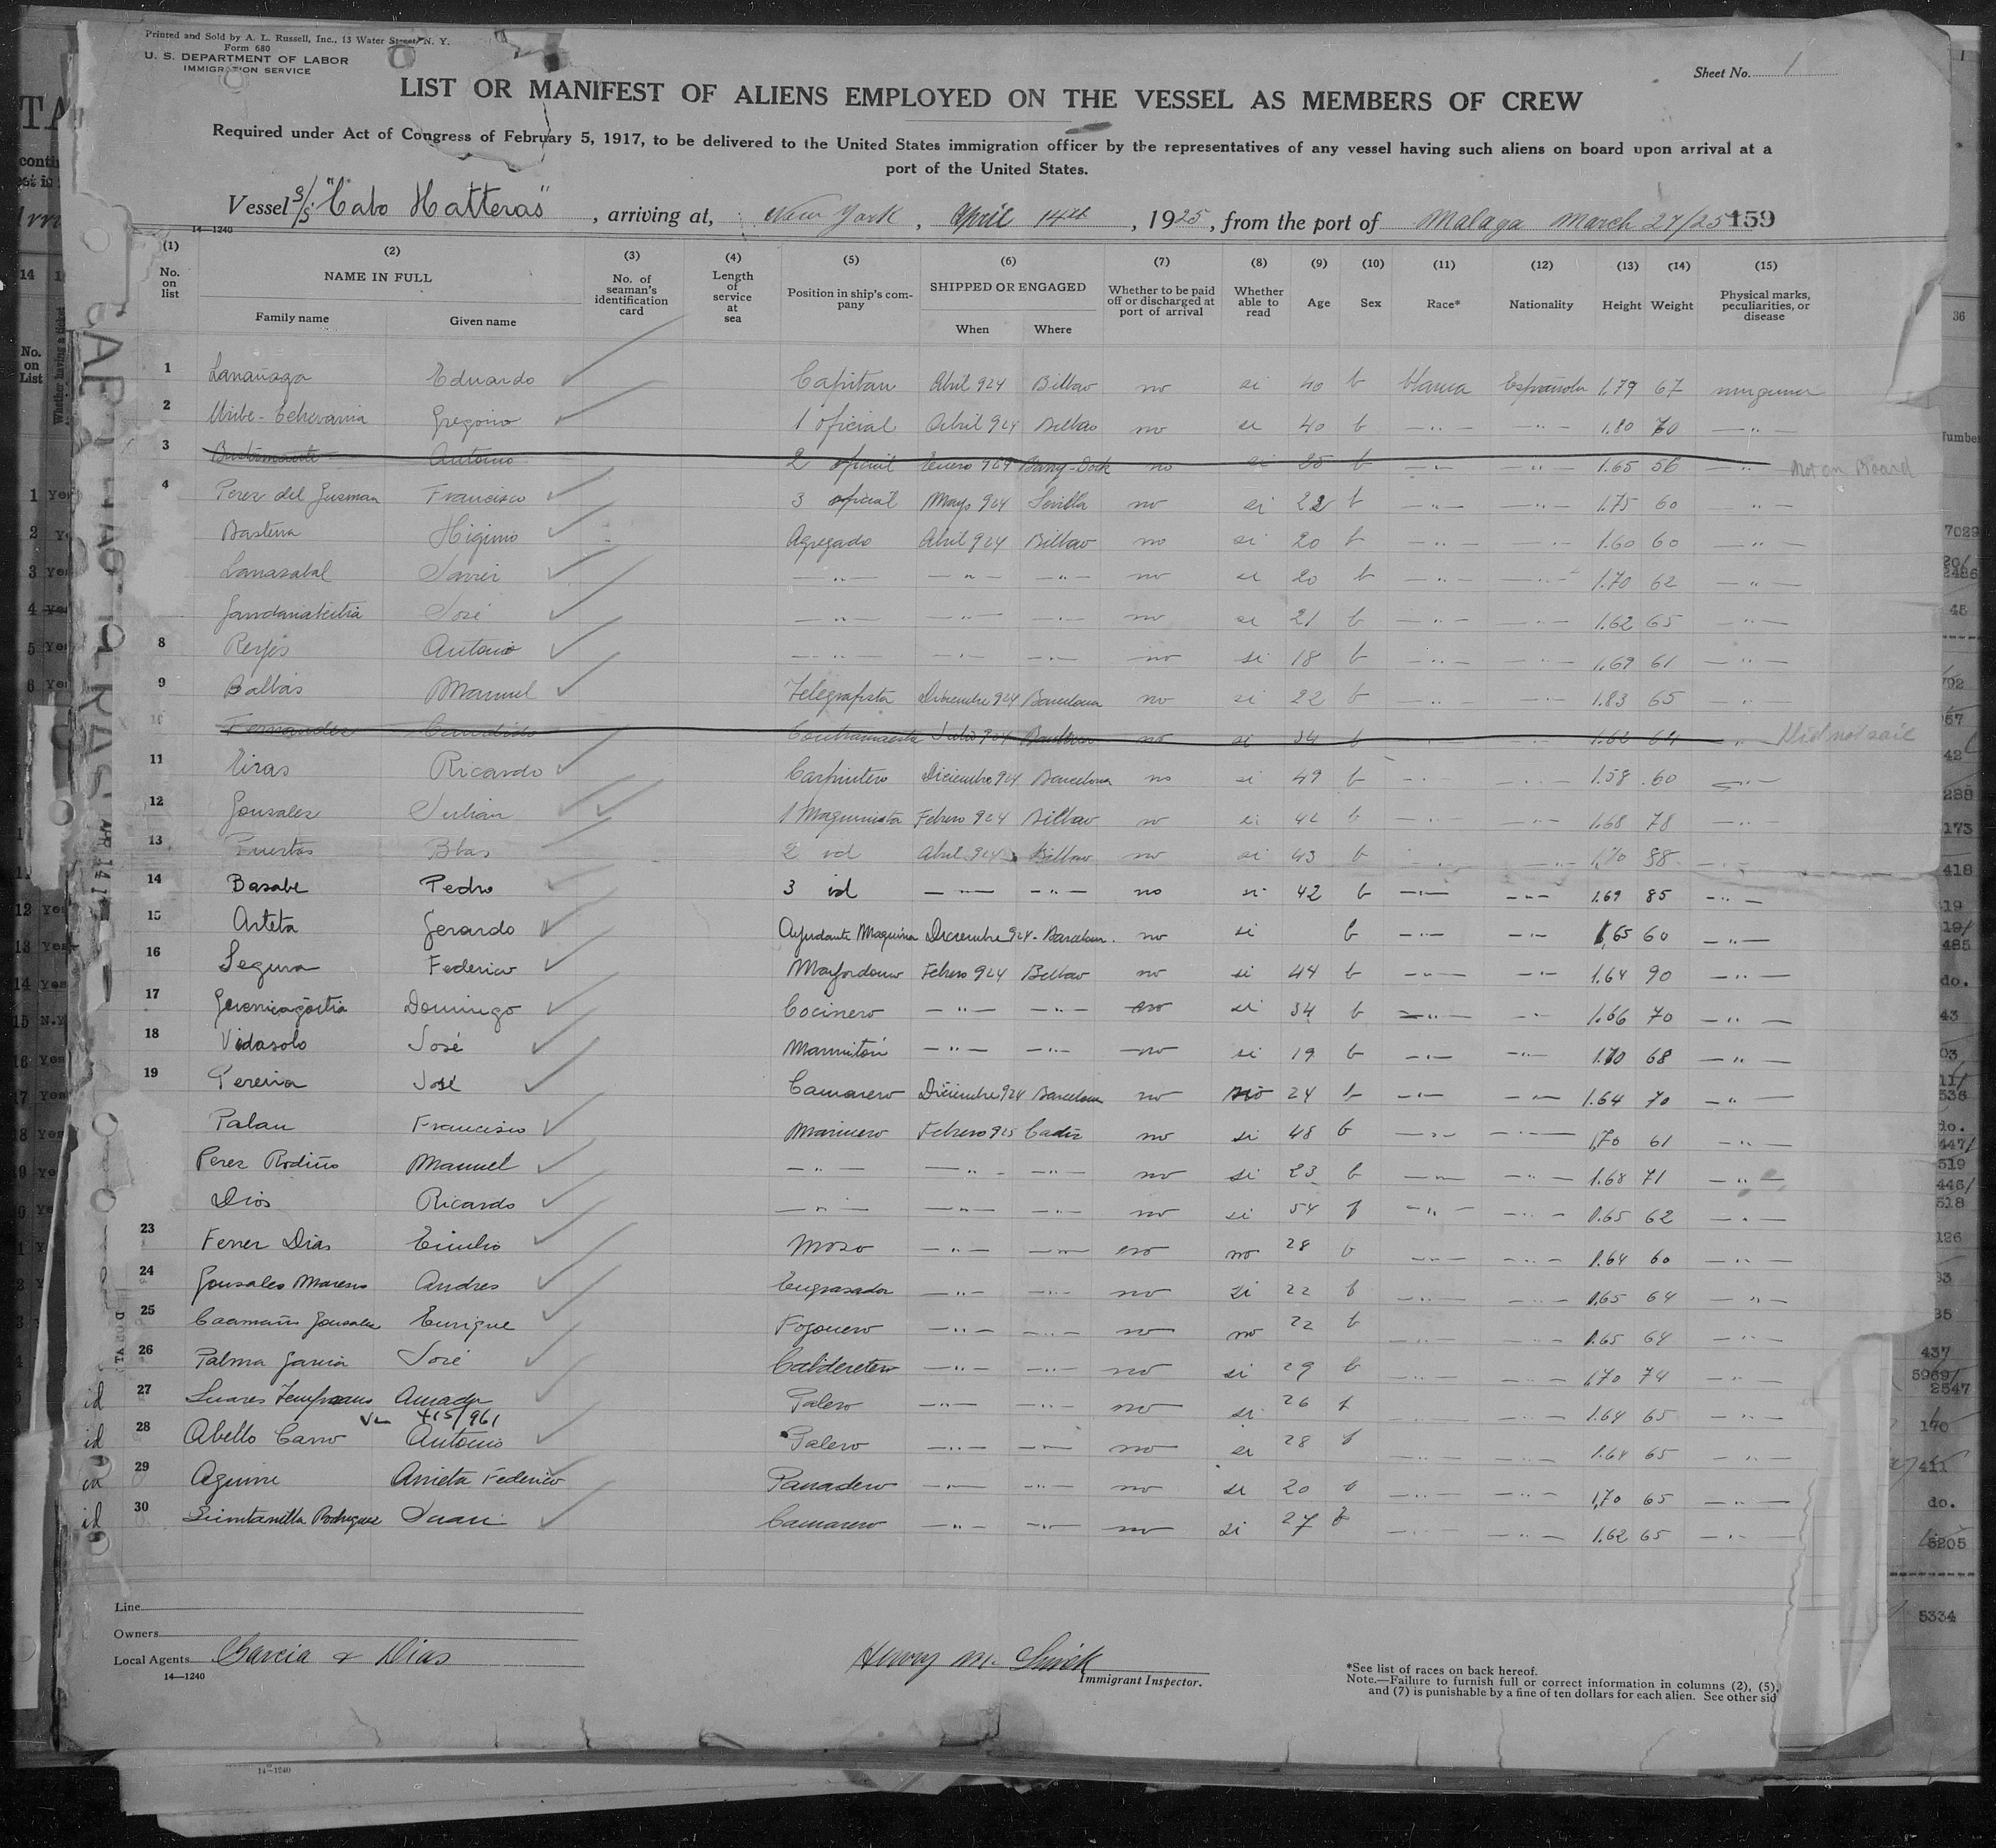 Printed and Sold by A. L. Russell, Inc., 13 Water Street, N. Y.
Form 680
U. S. DEPARTMENT OF LABOR
IMMIGRATION SERVICE
Sheet No. 1
LIST OR MANIFEST OF ALIENS EMPLOYED ON THE VESSEL AS MEMBERS OF CREW
Required under Act of Congress of February 5, 1917, to be delivered to the United States immigration officer by the representatives of any vessel having such aliens on board upon arrival at a
port of the United States.
Vessel S/S "Cabo Hatteras", arriving at, New York, April 14th, 1925, from the port of Malaga March 27/25 159
14—1240
(1) (2) (3) (4) (5) (6) (7) (8) (9) (10) (11) (12) (13) (14) (15)
No. on list NAME IN FULL Family name Given name No. of seaman's identification card Length of service at sea Position in ship's company SHIPPED OR ENGAGED When Where Whether to be paid off or discharged at port of arrival Whether able to read Age Sex Race* Nationality Height Weight Physical marks, peculiarities, or disease
1 Eduardo Capitan Abril 924 Bilbao no si 40 b blanca Española 1.79 67 ninguna
2 Uribe-Echevarria Gregorio 1 oficial Abril 924 Bilbao no si 40 b —··— —··— 1.80 70 —··—
3 Bustamante Antonio 2 oficial Enero 924 Barry-Dock no si 25 b —··— —··— 1.65 56 —··— Not on Board
4 Perez del Gusman Francisco 3 oficial Mayo 924 Sevilla no si 22 b —··— —··— 1.75 60 —··—
Basterra Higinio Agregado Abril 924 Bilbao no si 20 b —··— —··— 1.60 60 —··—
Javier —··— —··— —··— no si 20 b —··— —··— 1.70 62 —··—
José —··— —··— —··— no si 21 b —··— —··— 1.62 65 —··—
8 Reyes Antonio —··— —··— —··— no si 18 b —··— —··— 1.69 61 —··—
9 Balbás Manuel Telegrafista Diciembre 924 Barcelona no si 22 b —··— —··— 1.83 65 —··—
10 Fernandez Candido Contramaestre Julio 924 no si 34 b 64 —··— Did not sail
11 Ricardo Carpintero Diciembre 924 Barcelona no si 49 b —··— —··— 1.58 60 —··—
12 Gonsales Julian 1 Maquinista Febrero 924 Bilbao no si 42 b —··— —··— 1.68 78 —··—
13 Puertas Blas 2 id Abril 924 Bilbao no si 43 b —··— —··— 1.70 88 —··—
14 Basabe Pedro 3 id —··— —··— no si 42 b —··— —··— 1.69 85 —··—
15 Arteta Gerardo Ayudante Maquina Diciembre 924 Barcelona no si b —··— —··— 1,65 60 —··—
16 Segura Federico Mayordomo Febrero 924 Bilbao no si 44 b —··— —··— 1.64 90 —··—
17 Domingo Cocinero —··— —··— no si 34 b —··— —··— 1.66 70 —··—
18 Vidasolo José Marmitón —··— —··— no si 19 b —··— —··— 1.70 68 —··—
19 Pereira José Camarero Diciembre 924 Barcelona no 24 b —··— —··— 1.64 70 —··—
Palau Francisco Marinero Febrero 925 Cadiz no si 48 b —··— —··— 1,70 61 —··—
Perez Rodiño Manuel —··— —··— —··— no si 23 b —··— —··— 1.68 71 —··—
Dios Ricardo —··— —··— —··— no si 54 b —··— —··— 1.65 62 —··—
23 Ferrer Dias Emilio Moso —··— —··— no no 28 b —··— —··— 1.64 60 —··—
24 Gonsales Moreno Andres Engrasador —··— —··— no si 22 b —··— —··— 1.65 64 —··—
25 Caamaño Gonsales Enrique Fogonero —··— —··— no no 22 b —··— —··— 1.65 64 —··—
26 Palma Garcia José Calderetero —··— —··— no si 29 b —··— —··— 1.70 74 —··—
id 27 Suares Amador Palero —··— —··— no si 26 b —··— —··— 1.64 65 —··—
415/961
id 28 Abello Carro Antonio Palero —··— —··— no si 28 b —··— —··— 1.64 65 —··—
id 29 Aguirre Arrieta Federico Panadero —··— —··— no si 20 b —··— —··— 1,70 65 —··—
id 30 Quintanilla Rodriguez Juan Camarero —··— —··— no si 27 b —··— —··— 1.62 65 —··—
Line
Owners
Local Agents Garcia & Dias
14—1240
Immigrant Inspector.
*See list of races on back hereof.
Note.—Failure to furnish full or correct information in columns (2), (5),
and (7) is punishable by a fine of ten dollars for each alien. See other sid
14—1240